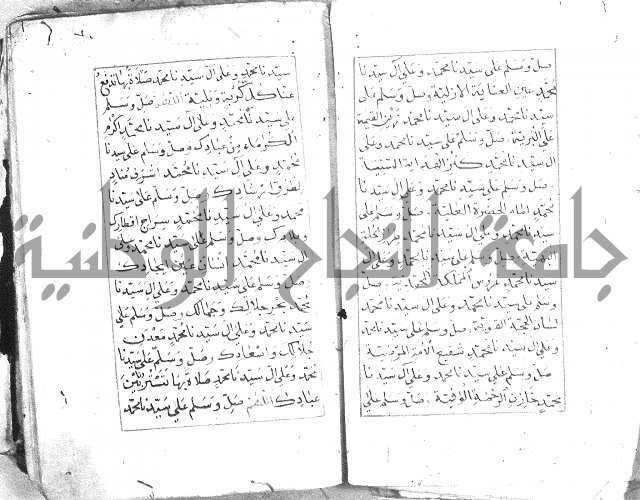 صل وسلم على سيدنا محمد وعلى آل سيدنا
محمد عين العناية الازلية وصل وسلم على
سيدنا محمد وعلى آل سيدنا محمد
على البرية صل وسلم على سيدنا محمد وعلى
آل سيدنا محمد كنز الهداية
صل وسلم على سيدنا محمد وعلى آل سيدنا
محمد امام الحضرة العلية صل وسلم على
سيدنا محمد وعلى آل سيدنا محمد
صل وسلم على سيدنا محمد وعلى آل
سيدنا محمد عروس المملكة صل
وسلم على سيدنا محمد وعلى آل سيدنا محمد
لسان الحجة القوية صل وسلم على سيدنا محمد
وعلى آل سيدنا محمد شفيع الأمم
صل وسلم على سيدنا محمد وعلى آل سيدنا
محمد خازن الرحمة صل وسلم على
سيدنا محمد وعلى آل سيدنا محمد صلاة بها تدفع
عنا كل كربة وبلية اللهم صل وسلم
على سيدنا محمد وعلى آل سيدنا محمد اكرم
الكرماء من عبادك وصل وسلم على سيدنا
محمد وعلى آل سيدنا محمد اشرف مناد
لطرق رشادك صل وسلم على سيدنا
محمد وعلى آل سيدنا محمد سراج اقطارك
وبلادك وصل وسلم على سيدنا محمد وعلى
آل سيدنا محمد انسان عين
صل وسلم على سيدنا محمد وعلى آل سيدنا
محمد بحر جلالك وجمالك وصل وسلم على
سيدنا محمد وعلى آل سيدنا محمد معدن
واسعادك وصل وسلم على سيدنا
محمد وعلى آل سيدنا محمد صلاة بها
عبادك اللهم صل وسلم على سيدنا محمد
جامعة النجاح الوطنية